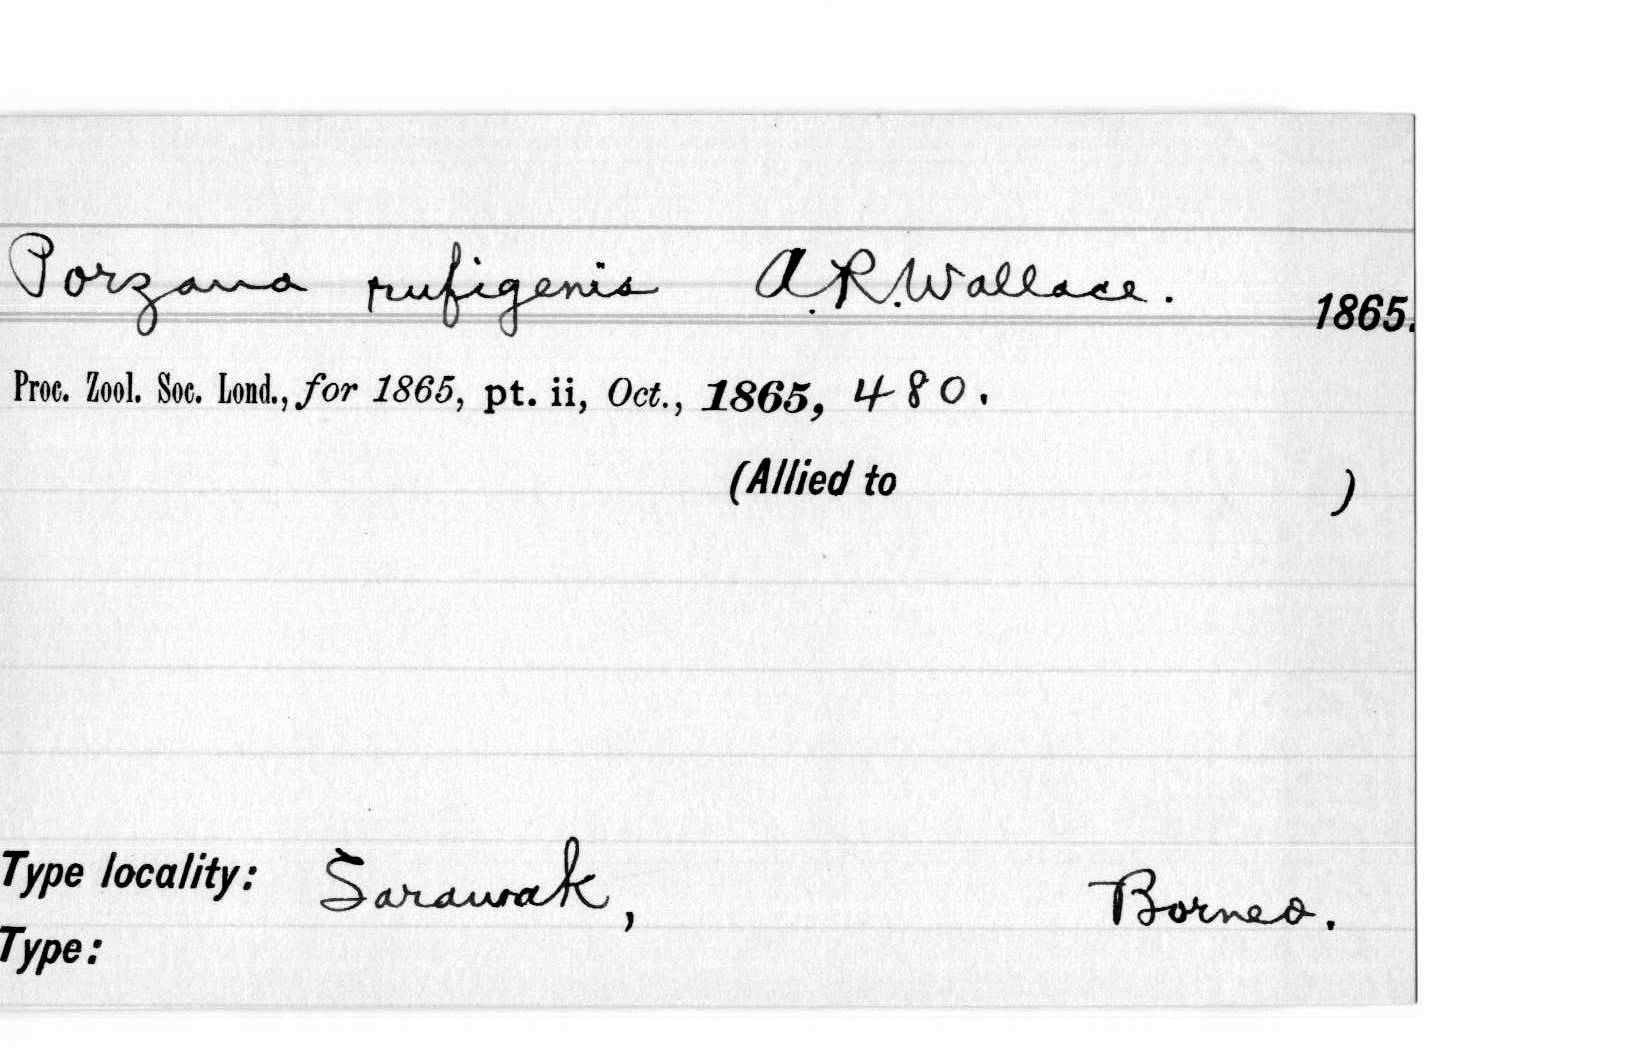 Porzana rufigenis A.R.Wallace. 1865.
Proc. Zool. Soc. Lond., for 1865, pt. ii, Oct., 1865, 480.
(Allied to )
Type locality: Sarawak, Borneo.
Type: